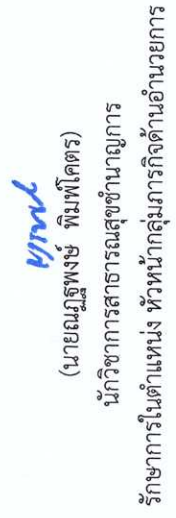 (นายณฏฐพงษ์ พิมพ์โคตร)
นักวิชาการสาธารณสุขชำนาญการ
รักษาการในตำแหน่ง หัวหน้ากลุ่มภารกิจด้านอำนวยการ